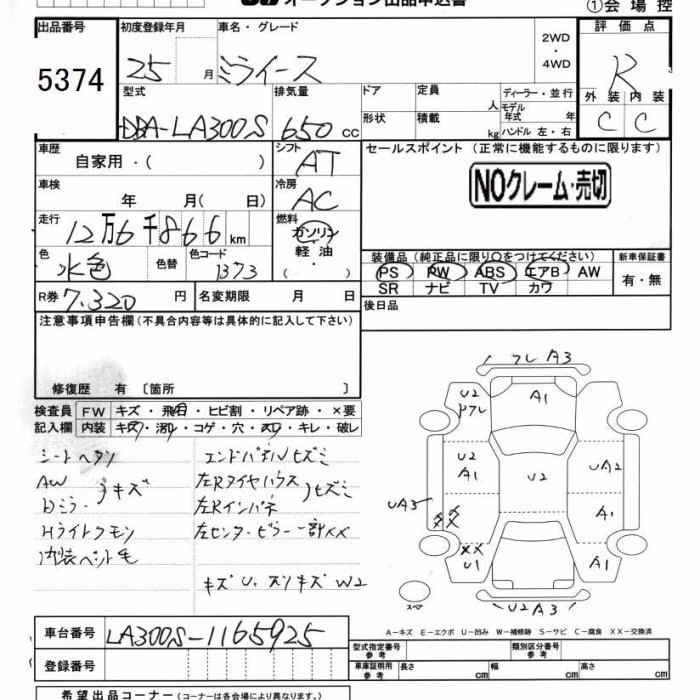 オークション出品申込書
①会場控
出品番号 初度登録年月 車名・グレード 2WD・4WD 評価点
5374 25 月 ミライース R
型式 排気量 ドア 定員 人 ディーラー・並行 外装 内装
DBA-LA300S 650 cc 形状 積載 kg モデル年式 年 ハンドル 左・右 C C
車歴 自家用・( ) シフト AT セールスポイント (正常に機能するものに限ります)
車検 年 月( 日) 冷房 AC NOクレーム・売切
走行 12万6千866 km 燃料 ガソリン 軽油 ( ・ )
色 水色 色替 色コード 1373 装備品 (純正品に限り○をつけてください) 新車保証書
PS PW ABS エアB AW 有・無
SR ナビ TV カワ
R券 7,320 円 名変期限 月 日 後日品
注意事項申告欄 (不具合内容等は具体的に記入して下さい)
修復歴 有 〔箇所 〕
検査員 FW キズ・飛石・ヒビ割・リペア跡・×要
記入欄 内装 キズ・汚れ・コゲ・穴・スレ・キレ・破レ
シートヘタリ
AW キズ
Dミラー
Hライトクモリ
内装ペット毛
エンドパネルヒズミ
左Rタイヤハウス ヒズミ
左Rインパネ
左センターピラー一部XX
キズU.スリキズW2
フレ A3
U2 A1
U2 A1 U2 UA2
UA3 XX A1
XX U1 A1
U2A3
スペア
A-キズ E-エクボ U-凹み W-補修跡 S-サビ C-腐食 XX-交換済
車台番号 LA300S-1165925
型式指定番号 参考 類別区分番号 参考
登録番号 車庫証明用 参考 長さ cm 幅 cm 高さ cm
希望出品コーナー (コーナーは各会場により異なります。)